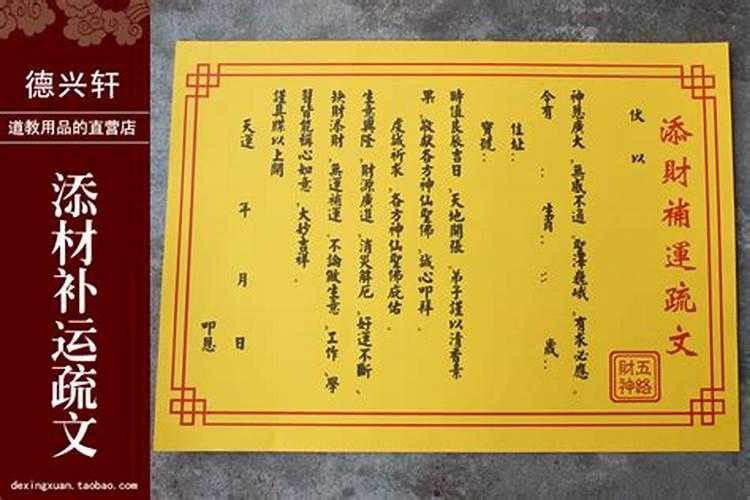 德兴轩
道教用品的直营店
添材补运疏文
dexingxuan.taobao.com
添財補運疏文
五路財神
伏以
神恩廣大、無感不通、聖澤巍峨、有求必應。
今有：生肖：：歲：
住址：
寶號：
時值良辰吉日、天地開張、弟子謹以清香素
果、敬献各方神仙聖佛、誠心叩拜。
虔誠祈求、各方神仙聖佛庇佑。
生意興隆、財源廣進、消災解厄、好運不斷、
缺財添財、無運補運、不論做生意、工作、學
習皆能稱心如意、大妙吉祥。
謹具牒以上聞
天運 年 月 日
叩恩